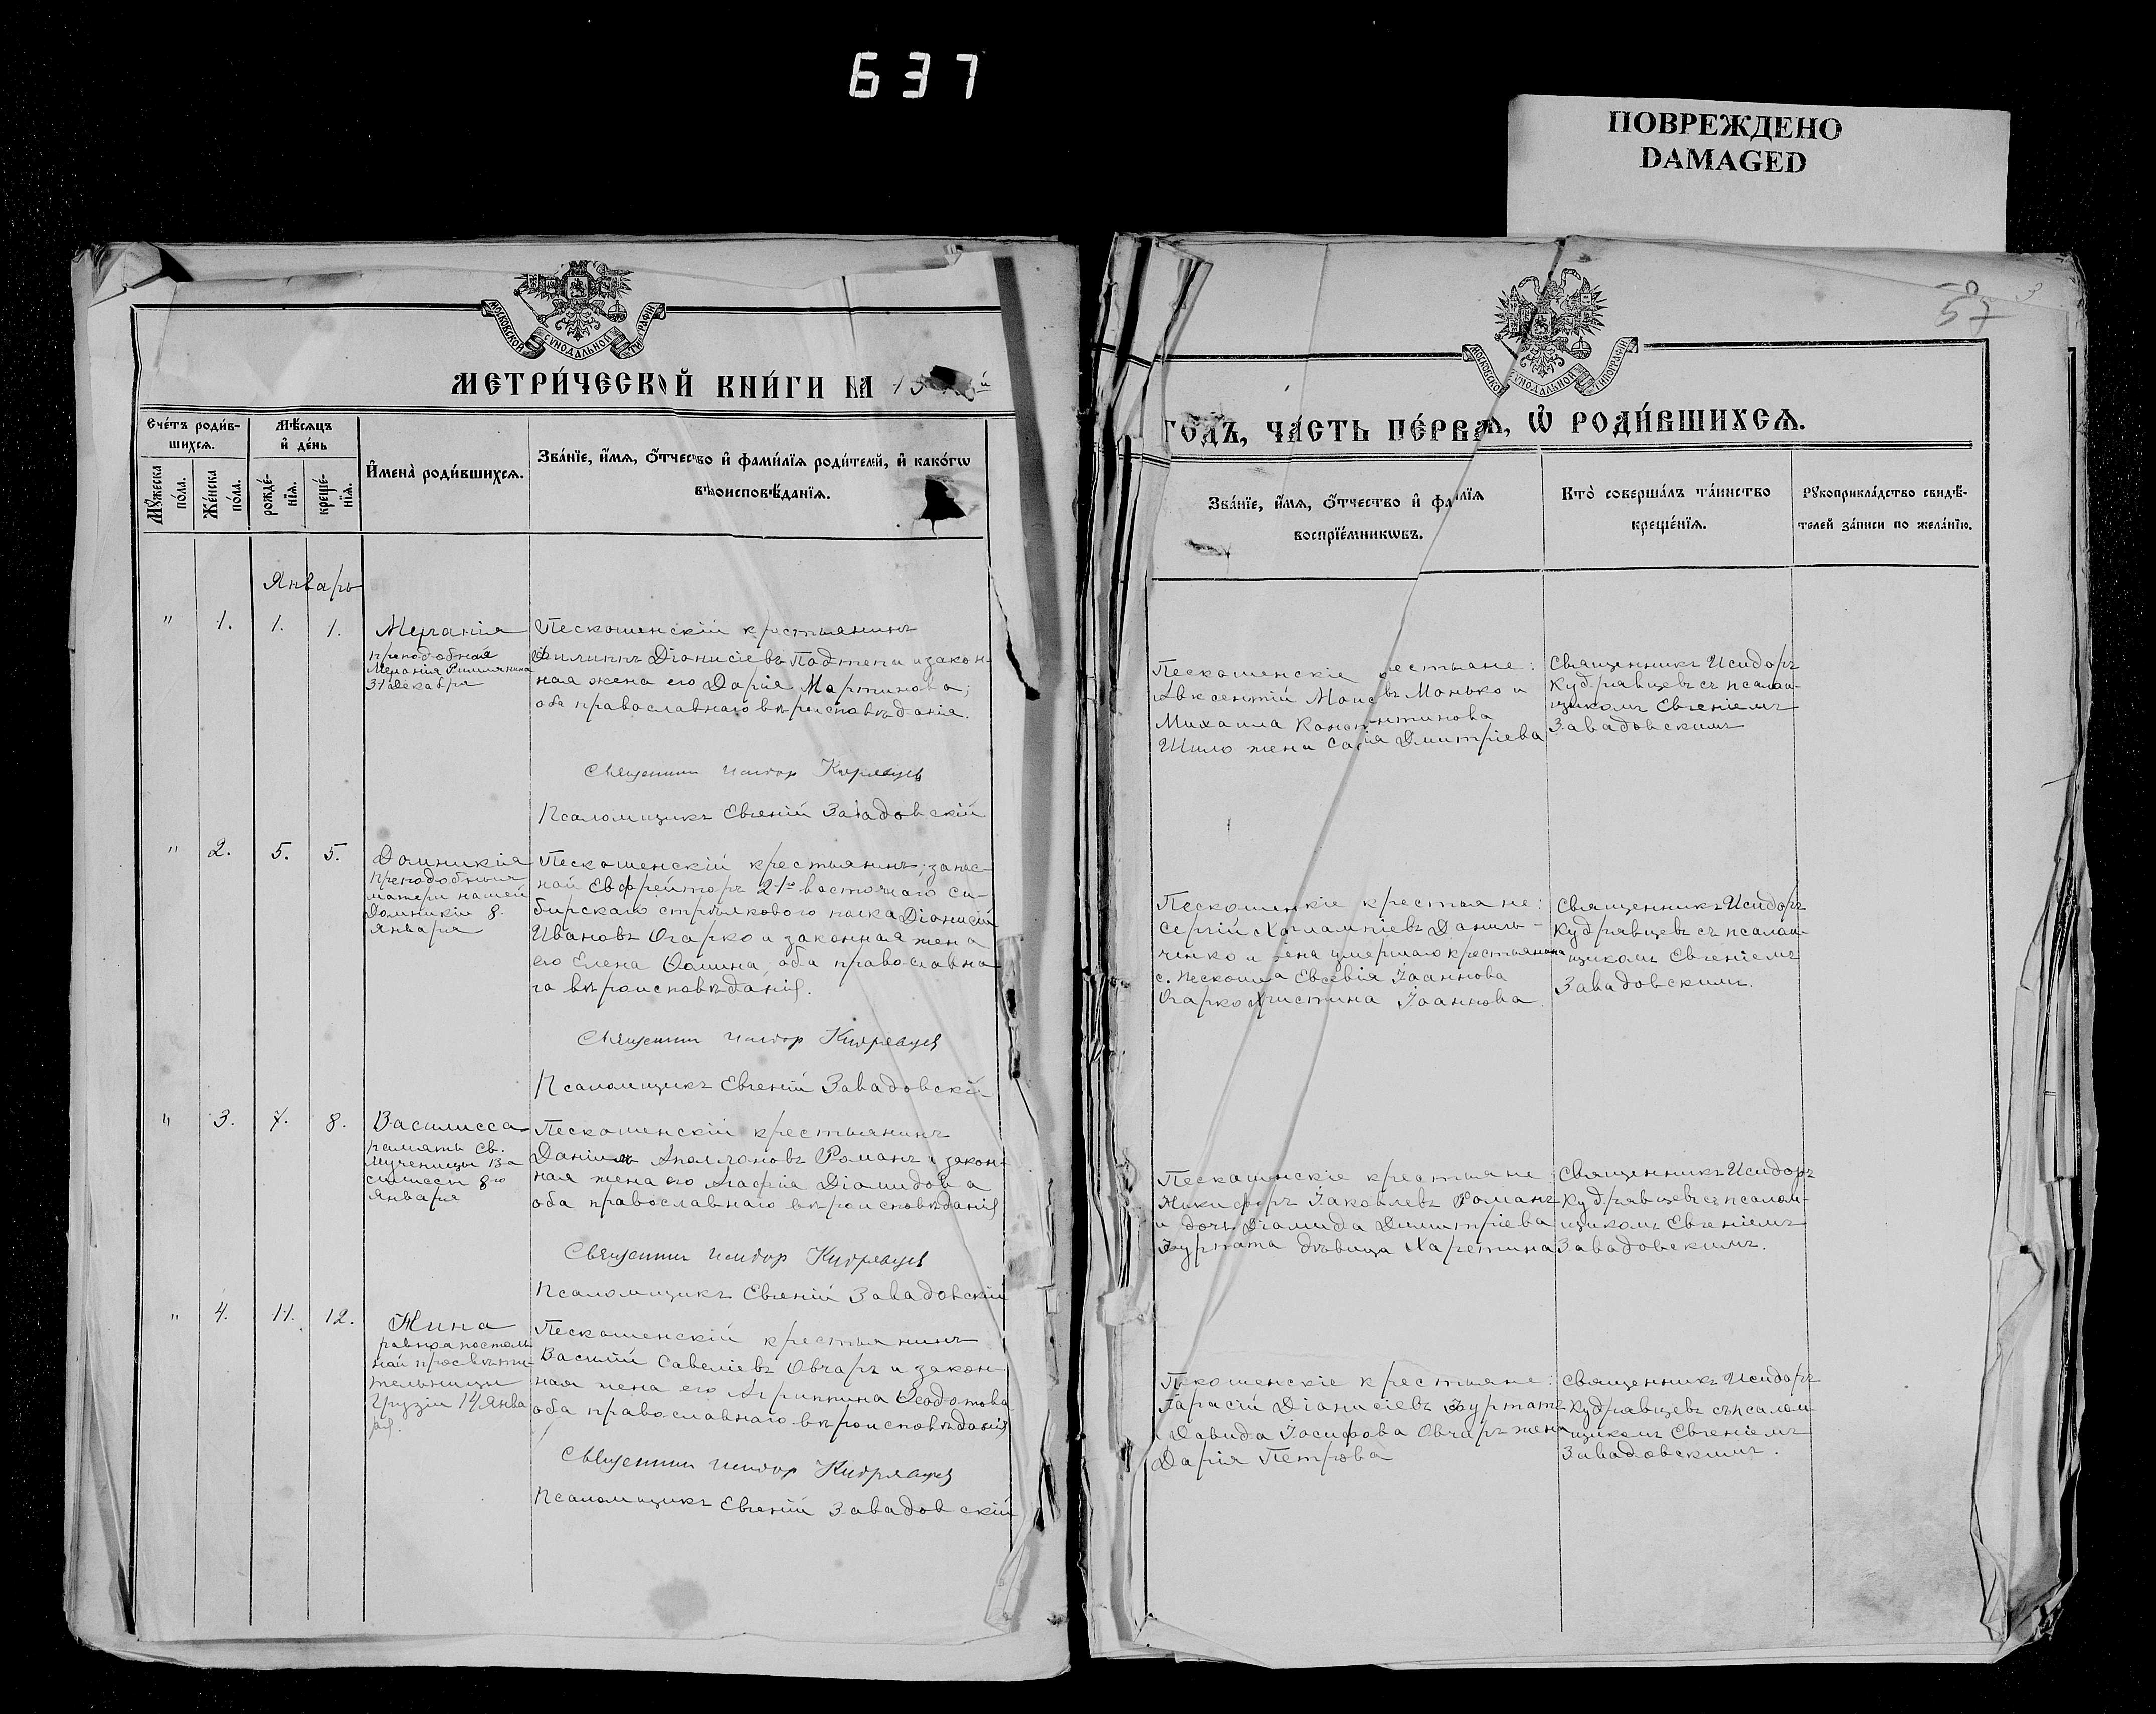 637
ПОВРЕЖДЕНО
DAMAGED
57
3
МОСКОВСКОЙ СѴНОДАЛЬНОЙ ТИПОГРАФІИ
МЕТРИ́ЧЕСКОЙ КНИ́ГИ НА
Сче́тъ роди́в-
шихсѧ.
Мѣ́сѧцъ
и҆ де́нь
Мꙋ́жеска
по́ла.
Же́нска
по́ла.
рожде́-
нїѧ.
креще́-
нїѧ.
И҆мена̀ роди́вшихсѧ.
Зва́нїе, и҆́мѧ, ѻ҆́тчество и҆ фами́лїѧ роди́телей, и҆ како́гѡ
вѣроисповѣ́данїѧ.
Январь
" 1. 1. 1.
Мелания
преподобная
Мелания Римляныня
31 декабря
Пескошенскій крестьянинъ
Филиппъ Діонисіевъ и закон-
ная жена его Дарія Мартинова;
оба православнаго вѣроисповѣданія.
Священникъ Исидор Кудрявцев
Псаломщикъ Евгеній Завадовскій
" 2. 5. 5.
Домникія
Преподобныя
матери нашей
Домникіи 8.
января
Пескошенскій крестьянинъ; запас-
ной Евфрейторъ 21го восточнаго Си-
бирскаго стрѣлкового полка Діонисій
Ивановъ Огарко и законная жена
его Елена Ѳомина, оба православна-
го вѣроисповѣданія.
Священникъ Исидор Кудрявцев
Псаломщикъ Евгеній Завадовскій
" 3. 7. 8.
Василисса
память Св.
Мученицы Ва-
силиссы 8го
Января
Пескошенскій крестьянинъ
Даніилъ Аполлоновъ Романъ и закон-
ная жена его Агафія Діомидова
оба православнаго вѣроисповѣданія
Священникъ Исидор Кудрявцев
Псаломщикъ Евгеній Завадовскій
" 4. 11. 12.
Нина
равноапостоль-
ной просвѣти-
тельницы
Грузіи 14 Янва-
ря.
Пескошенскій крестьянинъ
Василій Савеліевъ Овчаръ и закон-
ная жена его Агриппина Ѳеодотова
оба православнаго вѣроисповѣданія
Священникъ Исидор Кудрявцев
Псаломщикъ Евгеній Завадовскій
МОСКОВСКОЙ СѴНОДАЛЬНОЙ ТИПОГРАФІИ
ГОДЪ, ЧА́СТЬ ПЕ́РВАѦ, Ѡ҆ РОДИ́ВШИХСѦ.
Зва́нїе, и҆́мѧ, ѻ҆́тчество и҆ фамилїѧ
воспрїе́мникѡвъ.
Кто̀ соверша́лъ та́инство
креще́нїѧ.
Рꙋкоприкла́дство свидѣ́-
телей за́писи по жела́нїю.
Пескошенскіе крестьяне:
Авксентій Монько и
Михаила Константинова
Шило жена Софія Дмитріева
Священникъ Исидоръ
Кудрявцевъ съ псалом-
щикомъ Евгеніемъ
Завадовскимъ
Пескошенскіе крестьяне:
Сергій Харлампіевъ Даниль-
ченко и жена умершаго крестьянина
с. Пескошина Евсевія Іоаннова
Огарко Христина Іоаннова.
Священникъ Исидоръ
Кудрявцевъ съ псалом-
щикомъ Евгеніемъ
Завадовскимъ.
Пескошенскіе крестьяне:
Никифоръ Іаковлевъ Романъ
и дочь Діомида Димитріева
дѣвица Харитина
Священникъ Исидоръ
Кудрявцевъ съ псалом-
щикомъ Евгеніемъ
Завадовскимъ.
Пескошенскіе крестьяне:
Тарасій Діонисіевъ
Давида Іосифова Овчаръ жена
Дарія Петрова
Священникъ Исидоръ
Кудрявцевъ съ псалом-
щикомъ Евгеніемъ
Завадовскимъ.